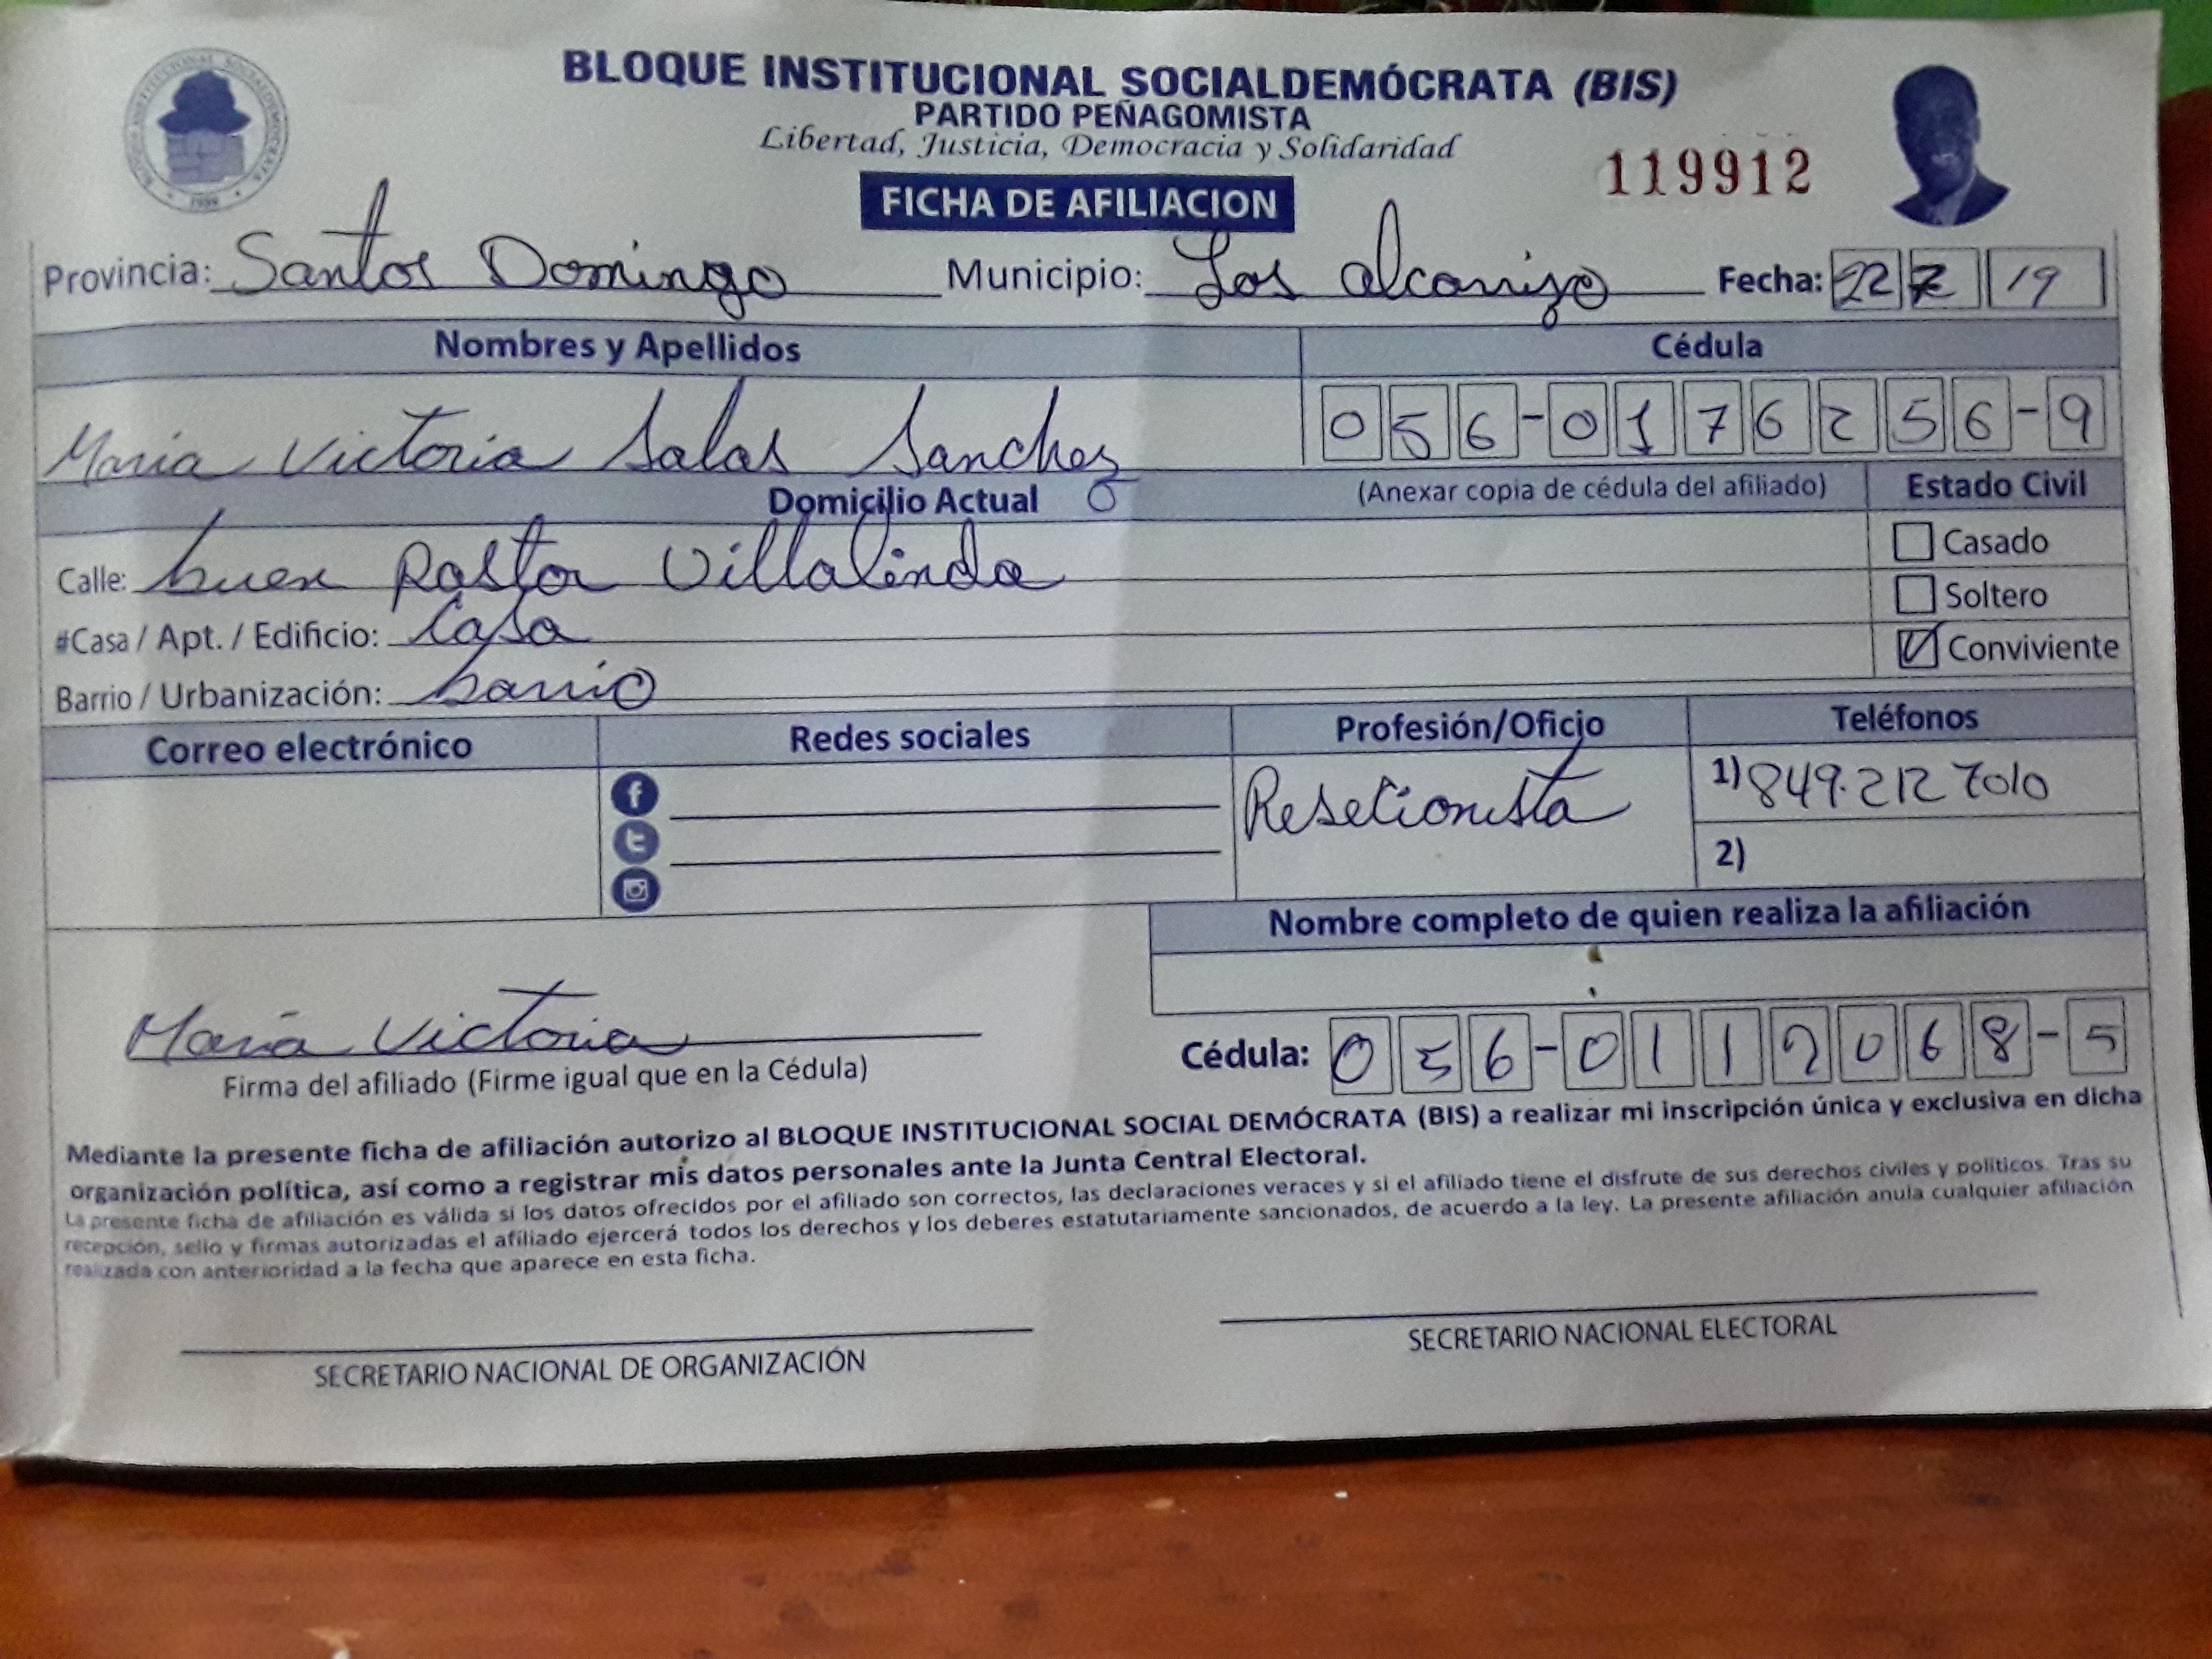 BLOQUE INSTITUCIONAL SOCIALDEMÓCRATA (BIS)
PARTIDO PEÑAGOMISTA
Libertad, Justicia, Democracia y Solidaridad
119912
FICHA DE AFILIACION
Provincia: Santos Domingo Municipio: Los alcarrizo Fecha: 22 7 19
Nombres y Apellidos Cédula
Maria Victoria Salas Sanchez 056-0176256-9
Domicilio Actual (Anexar copia de cédula del afiliado) Estado Civil
Calle: buen Pastor Villalinda Casado
Soltero
#Casa / Apt. / Edificio: Casa
Conviviente
Barrio / Urbanización: barrio
Correo electrónico Redes sociales Profesión/Oficio Teléfonos
Resetionista 1) 849.212 7010
2)
Nombre completo de quien realiza la afiliación
Maria Victoria
Firma del afiliado (Firme igual que en la Cédula)
Cédula: 056-0112068-5
Mediante la presente ficha de afiliación autorizo al BLOQUE INSTITUCIONAL SOCIAL DEMÓCRATA (BIS) a realizar mi inscripción única y exclusiva en dicha
organización política, así como a registrar mis datos personales ante la Junta Central Electoral.
La presente ficha de afiliación es válida si los datos ofrecidos por el afiliado son correctos, las declaraciones veraces y si el afiliado tiene el disfrute de sus derechos civiles y políticos. Tras su
recepción, sello y firmas autorizadas el afiliado ejercerá todos los derechos y los deberes estatutariamente sancionados, de acuerdo a la ley. La presente afiliación anula cualquier afiliación
realizada con anterioridad a la fecha que aparece en esta ficha.
SECRETARIO NACIONAL DE ORGANIZACIÓN
SECRETARIO NACIONAL ELECTORAL